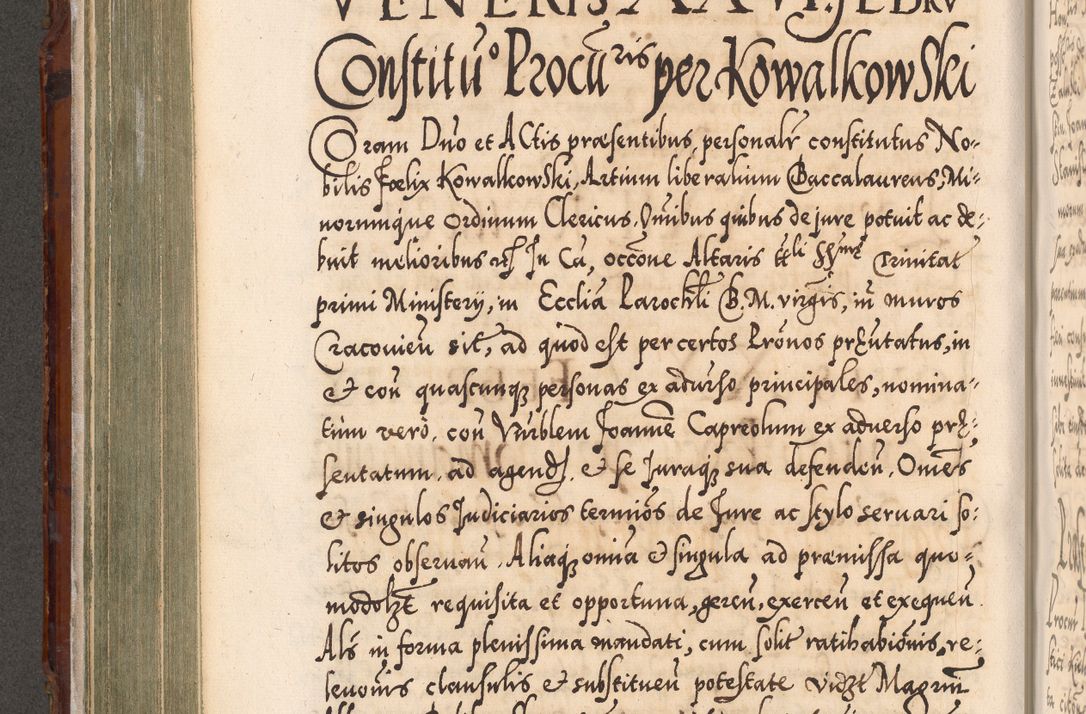 VENERIS XXVI. FEBRV
Constitu͠o Procu͠ris per Kowalkowski
Coram Dno et Actis præsentibus, personalr constitutus No-
bilis Fœlix Kowalkowski, Artium liberalium Baccalaureus, Mi-
norumque Ordinum Clericus. Omibus quibus de jure potuit ac de-
buit melioribus In Ca, occõne Altaris ttli SSmæ Trinitat
primi Ministerij, in Ecclia Parochli B. M. virgis, in muros
Cracovien sit, ad quod est per certos Prõnos pręntatus, in
et con quascunq personas ex adverso principales, nomina-
tim verò, con Vnrblem Joannem Capreolum ex adverso prę-
sentatum, ad agend, et se Juraq sua defenden. Omes
et singulos Judiciarios termiõs de Jure ac stylo servari so-
litos observan. Aliaq omia et singula ad præmissa quo-
modolzt requisita et opportuna, geren, exercen et exequen
Als in forma plenissima mandati, cum solit ratihabiõnis, re-
levõnis clausulis et substituen potestate vidzt Magrum